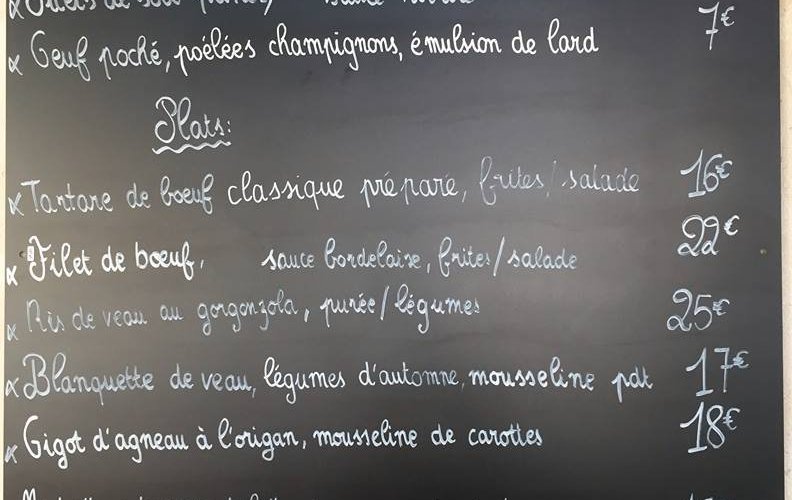 Oeuf poché, poélées champignons, émulsion de lard 7€
Plats:
Tartare de boeuf classique préparé, frites/salade 16€
Filet de boeuf, sauce bordelaise, frites/salade 22€
Ris de veau au gorgonzola, purée/légumes 25€
Blanquette de veau, légumes d'automne, mousseline pdt 17€
Gigot d'agneau à l'origan, mousseline de carottes 18€